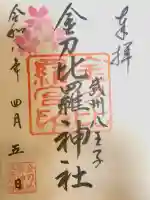 奉拝
武州八王子
金刀比羅神社
令和八年四月五日